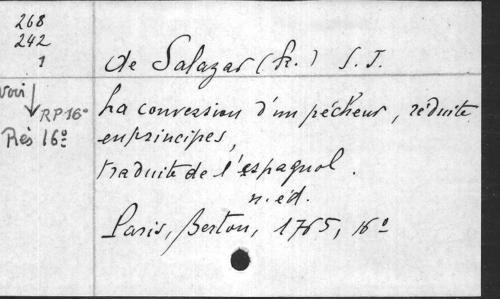 268
242
1
de Salazar (h.) S. J.
voir
RP 16º
Rés 16º
La conversion d'un pécheur, réduite
en principes,
traduite de l'espagnol.
n. éd.
Paris, Berton, 1765, 16º